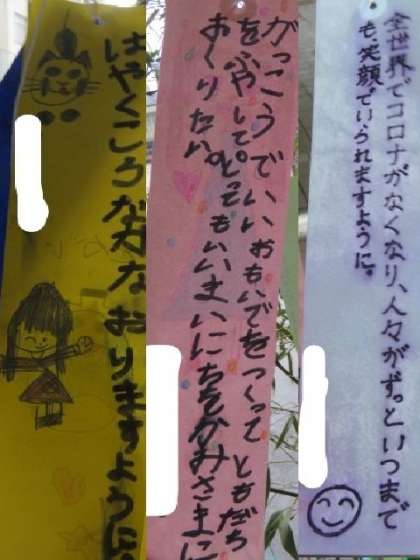 全世界でコロナがなくなり、人々がずっといつまで
も、笑顔でいられますように。
がっこうでいいおもいでをつくって ともだち
をふやして。とってもいいまいにちをかみさまに
おくりたい。
はやくころながなおりますように。